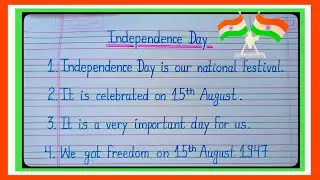 Independence Day
1. Independence Day is our national festival.
2. It is celebrated on 15th August.
3. It is a very important day for us.
4. We got freedom on 15th August 1947